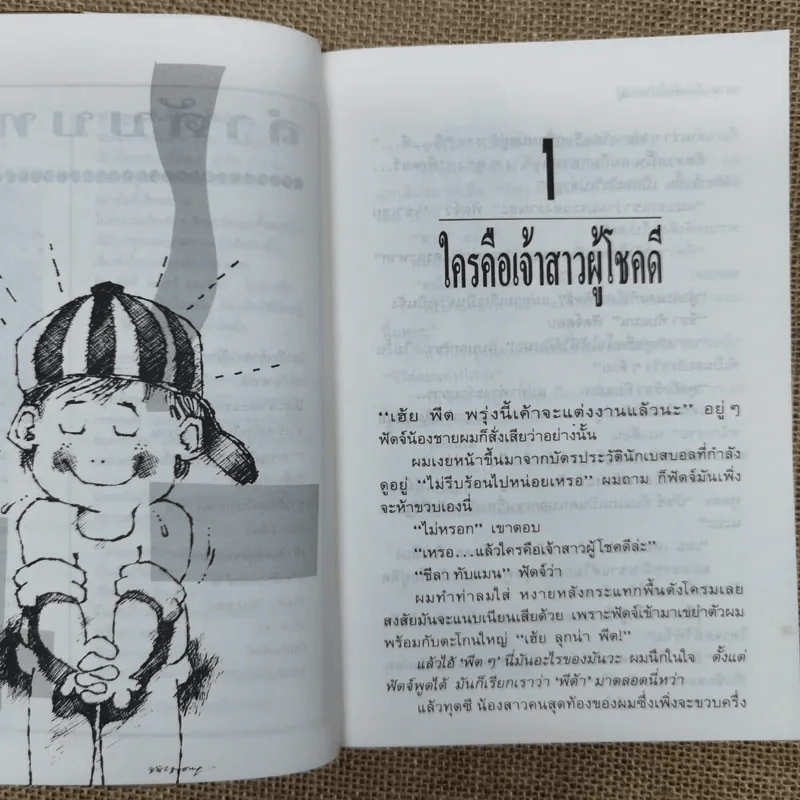 1
ใครคือเจ้าสาวผู้โชคดี
“เฮ้ย พีต พรุ่งนี้เค้าจะแต่งงานแล้วนะ” อยู่ๆ
ฟัดจ์น้องชายผมก็สั่งเสียว่าอย่างนั้น
ผมเงยหน้าขึ้นมาจากบัตรประวัตินักเบสบอลที่กำลัง
ดูอยู่ “ไม่รีบร้อนไปหน่อยเหรอ” ผมถาม ก็ฟัดจ์มันเพิ่ง
จะห้าขวบเองนี่
“ไม่หรอก” เขาตอบ
“เหรอ...แล้วใครคือเจ้าสาวผู้โชคดีล่ะ”
“ชีลา ทับแมน” ฟัดจ์ว่า
ผมทำท่าล้มใส่ หงายหลังกระแทกพื้นดังโครมเลย
สงสัยมันจะแนบเนียนเสียด้วย เพราะฟัดจ์เข้ามาเขย่าตัวผม
พร้อมกับตะโกนใหญ่ “เฮ้ย ลุกน่า พีต!”
แล้วไอ้ ‘พีต ๆ’ นี่มันอะไรของมันวะ ผมนึกในใจ ตั้งแต่
ฟัดจ์พูดได้ มันก็เรียกเราว่า ‘พีต้า’ มาตลอดนี่หว่า
แล้วทุตซี น้องสาวคนสุดท้องของผมซึ่งเพิ่งจะขวบครึ่ง